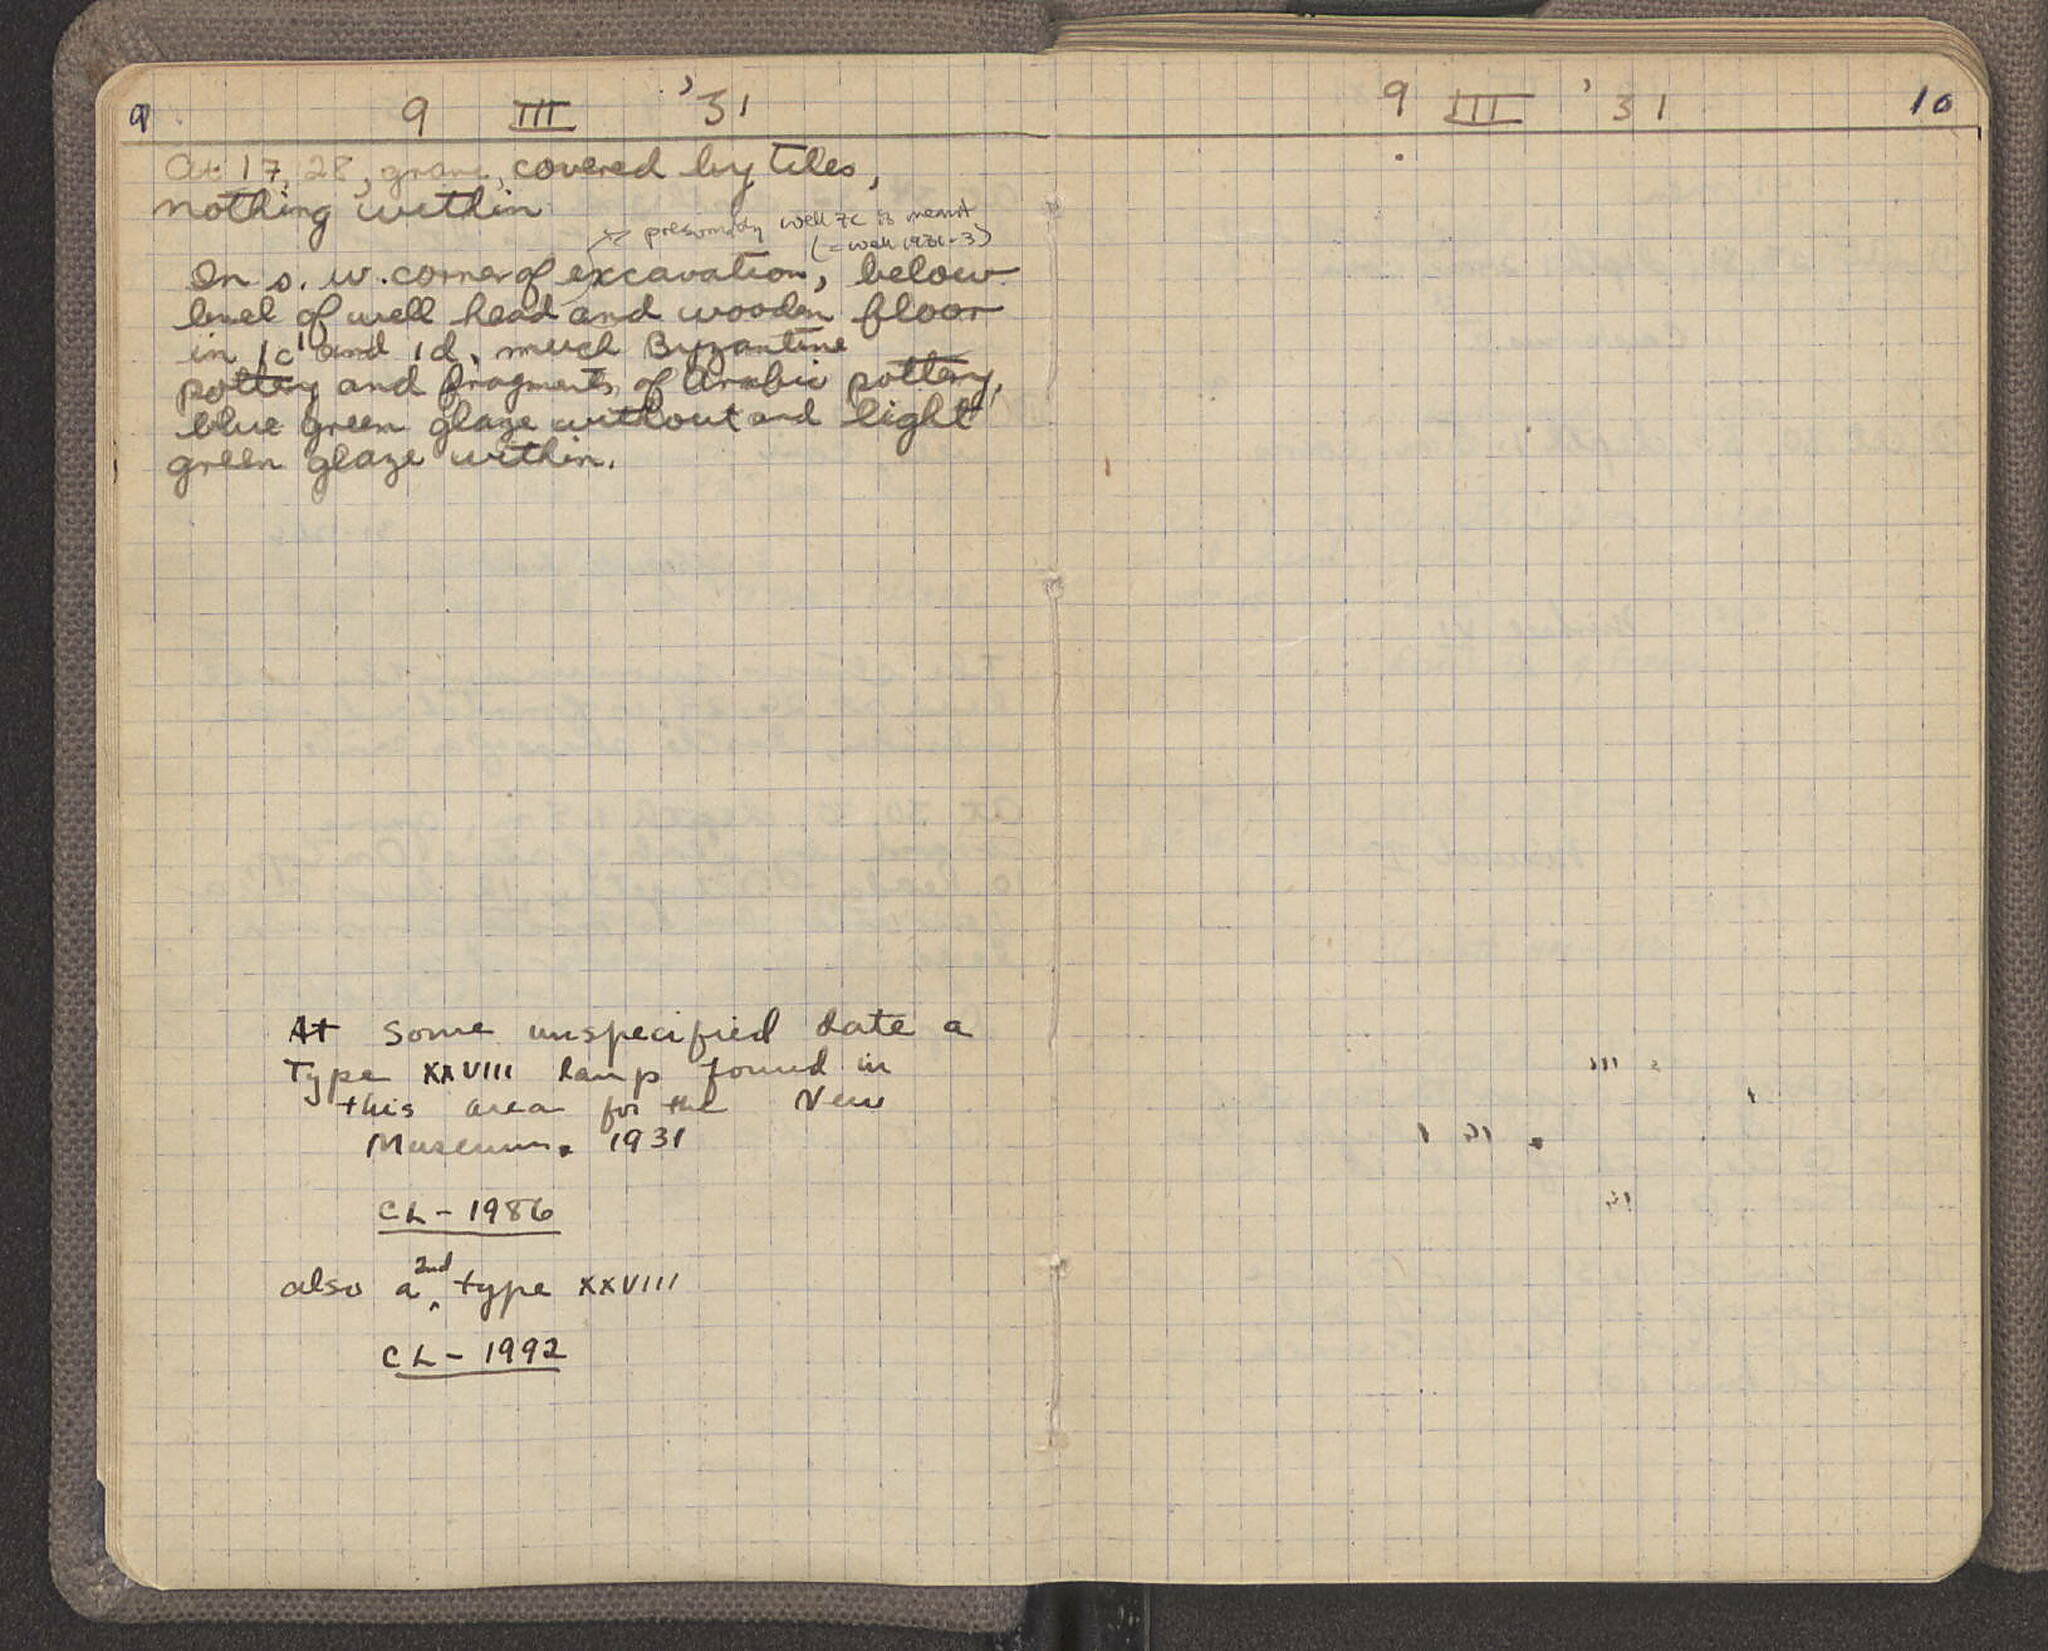 9
9 III '31
At 17, 28, grave, covered by tiles,
nothing within
presumably well 7c is meant
(= well 1931-3)
In s. w. corner of excavation, below
level of well head and wooden floor
in 1c and 1d, much Byzantine
pottery and fragments of Arabic pottery,
blue green glaze without and light
green glaze within.
At some unspecified date a
Type XXVIII lamp found in
this area for the New
Museum. 1931
CL - 1986
also a 2nd type XXVIII
CL - 1992
9 III '31
10